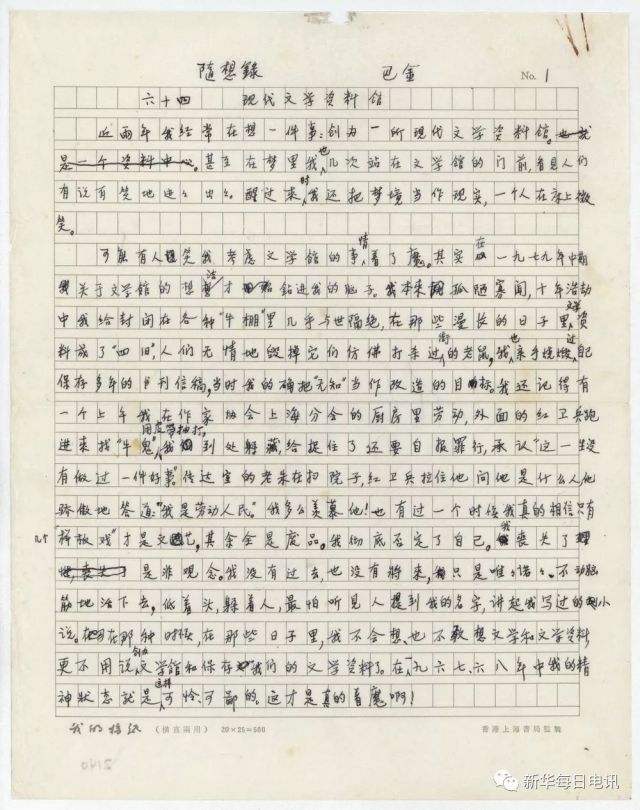 隨想錄 巴金 No. 1
六十四 现代文学资料馆
近两年我经常在想一件事：创办一所现代文学资料馆。
甚至在梦里我也几次站在文学馆的门前，看见人们
有说有笑地进进出出。醒过来时，我还把梦境当作现实，一个人在床上微
笑。
可能有人笑我考虑文学馆的事情着了魔。其实在一九七九年中期
我关于文学馆的想法才钻进我的脑子。我本来孤陋寡闻，十年浩劫
中我给封闭在各种“牛棚”里几乎与世隔绝，在那些漫长的日子里，文学资
料成了“四旧”，人们无情地毁掉它们仿佛打杀过街的老鼠，我也亲手烧毁过自己
保存多年的书刊信稿，当时我的确把“无知”当作改造的目标。我还记得有
一个上午我在作家协会上海分会的厨房里劳动，外面的红卫兵跑
进来找“牛鬼”用皮带抽打，我到处躲藏给捉住了还要自报罪行，承认“这一生没
有做过一件好事”。传达室的老朱在扫院子，红卫兵拉住他问他是什么人他
骄傲地答道“我是劳动人民”。我多么羡慕他！也有过一个时候我真的相信只有
几个“样板戏”才是文艺，其余全是废品。我彻底否定了自己。我丧失了
是非观念。我没有过去，也没有将来，只是唯唯诺诺，不动脑
筋地活下去，低着头，躲着人，最怕听见人提到我的名字，讲起我写过的小
说。在那种时候，在那些日子里，我不会想也不敢想文学和文学资料
更不用说创办文学馆和保存我们的文学资料了。在一九六七、六八年中我的精
神状态就是这样可怜、可鄙的。这才是真的着魔啊！
（横直兩用） 20×25=500 香港上海書局監製
新华每日电讯